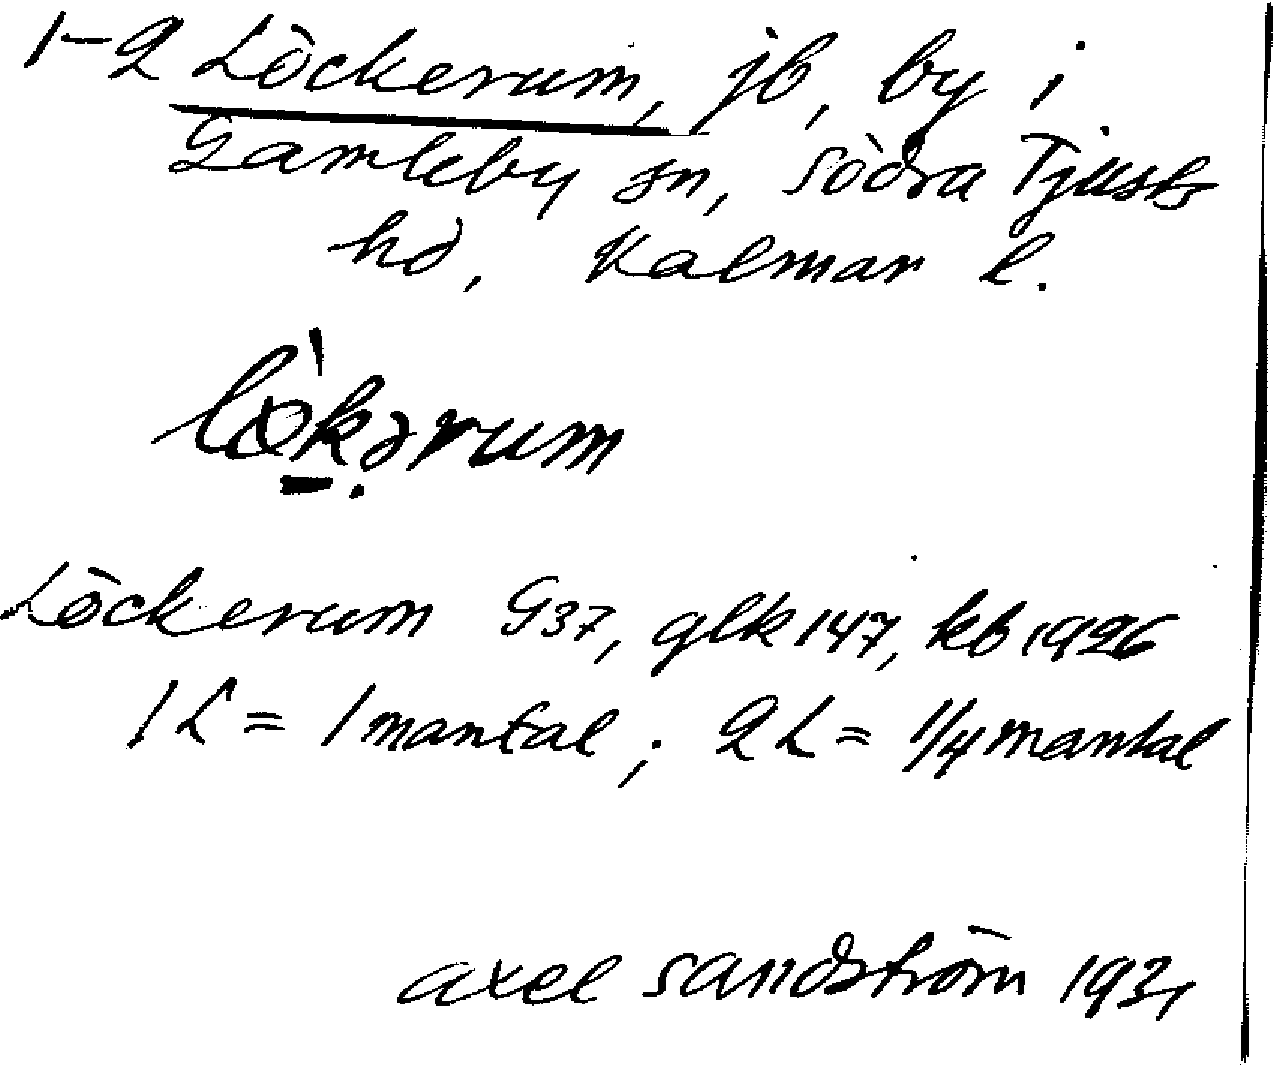 1-2 Löckerum, jb, by i
Gamleby sn, Södra Tjusts
hd, Kalmar l.
lö̀kərum
Löckerum G37, glk 147, kb 1926
1 L = 1 mantal; 2 L = 1/4 mantal
axel sandström 1931